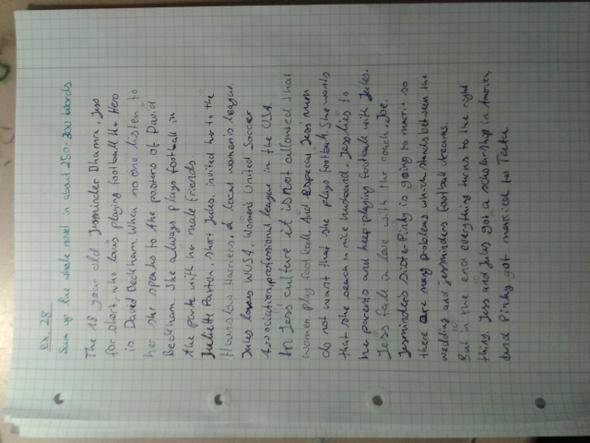 Ex 28
Sum up the whole novel in about 250-300 words
The 18 year old Jesminder Bhamra, Jess
for short, who loves playing football. Her Hero
is David Beckham. When no one listen to
her she speaks to the posters of David
Beckham. She always plays football in
the park with her male friends
Juliette Paxton, short Jules, invited her to the
Hounslow Harriers, a local women's league.
Jules loves WUSA, Women's United Soccer
Association professional league in the USA.
In Jess culture it is not allowed that
women play football. And especial Jess mum
do not want that she plays football. She wants
that she search a nice husband. Jess lies to
her parents and keep playing football with Jules.
Jess falls in love with the coach, Joe.
Jesminders sister Pinky is going to marrie so
there are many problems which stands between the
wedding and jesminders football dreams.
But in the end everything turns to the right
thing. Jess and Jules got a scholarship in America
and Pinky got married to Teetu